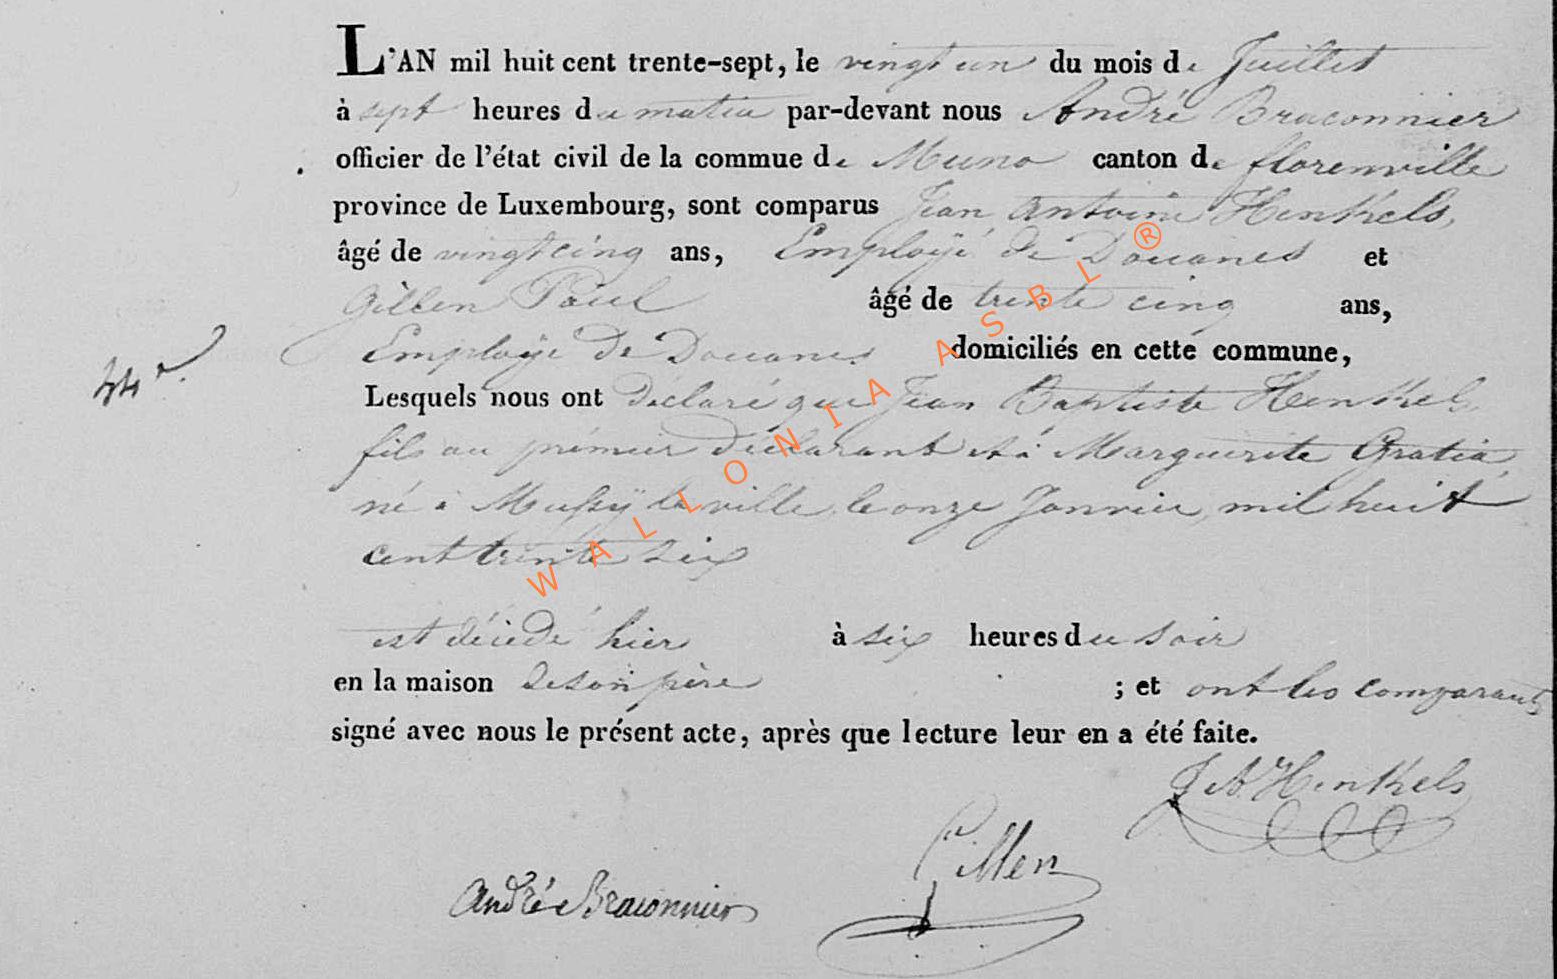 L'AN mil huit cent trente-sept, le vingt un du mois de Juillet
à sept heures du matin par-devant nous André Braconnier
officier de l'état civil de la commue de Muno canton de florenville
province de Luxembourg, sont comparus Jean Antoine Henkels,
âgé de vingt cinq ans, Employé de Douanes et
Gillen Paul âgé de trente cinq ans,
Employé de Douanes domiciliés en cette commune,
Lesquels nous ont déclaré que Jean Baptiste Henkels
fils au prémier déclarant et à Marguerite Gratia,
né à Mussy la ville, le onze Janvier mil huit
cent trente six
est décédé hier à six heures du soir
en la maison de son père ; et ont les comparants
signé avec nous le présent acte, après que lecture leur en a été faite.
J A Henkels
Gillen
André Braconnier
WALLONIA ASBL ®